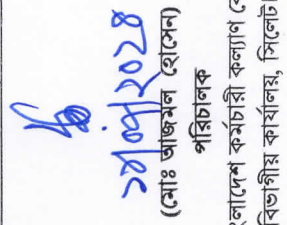 (মোঃ আজমল হোসেন)
পরিচালক
বাংলাদেশ কর্মচারী কল্যাণ
বিভাগীয় কার্যালয়, সিলেট